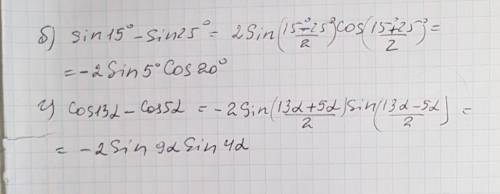 б) sin15° - sin25° = 2Sin(15°-25°/2)Cos(15°+25°/2) =
= -2Sin5°Cos20°
г) Cos13α - Cos5α = -2Sin(13α+5α/2)Sin(13α-5α/2) =
= -2Sin9αSin4α